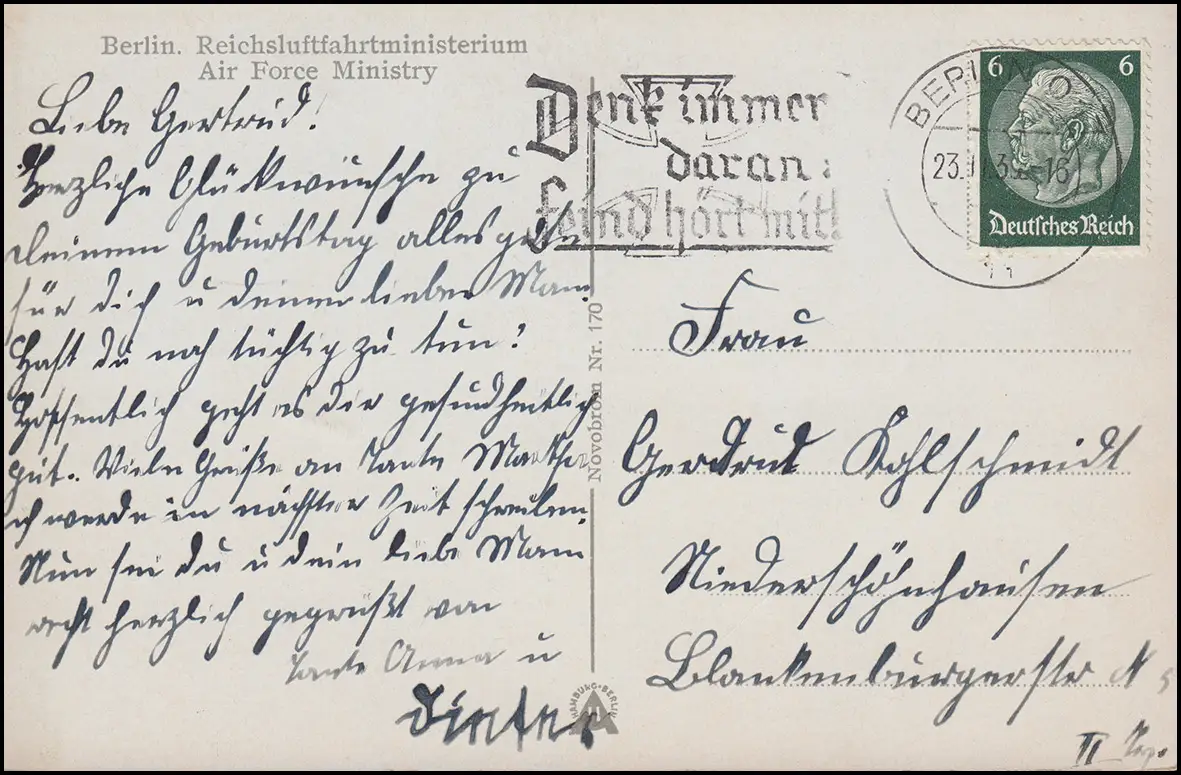 Berlin. Reichsluftfahrtministerium
Air Force Ministry
Liebe Gertrud!
Herzliche Glückwünsche zu
deinem Geburtstag alles gute
für dich u deinen lieben Mann.
Hast du noch tüchtig zu tun?
Hoffentlich geht es dir gesundheitlich
gut. Viele Grüße an Tante Martha
ich werde in nächster Zeit schreiben.
Nun sei du u dein lieber Mann
recht herzlich gegrüßt von
Tante Anna u
Dieter
Novobrom Nr. 170
HAMBURG-BERLIN
Denk immer
daran:
Feind hört mit!
BERLIN O
23.
-16
6 6
Deutsches Reich
Frau
Gertrud Kohlschmidt
Niederschönhausen
Blankenburgerstr
II